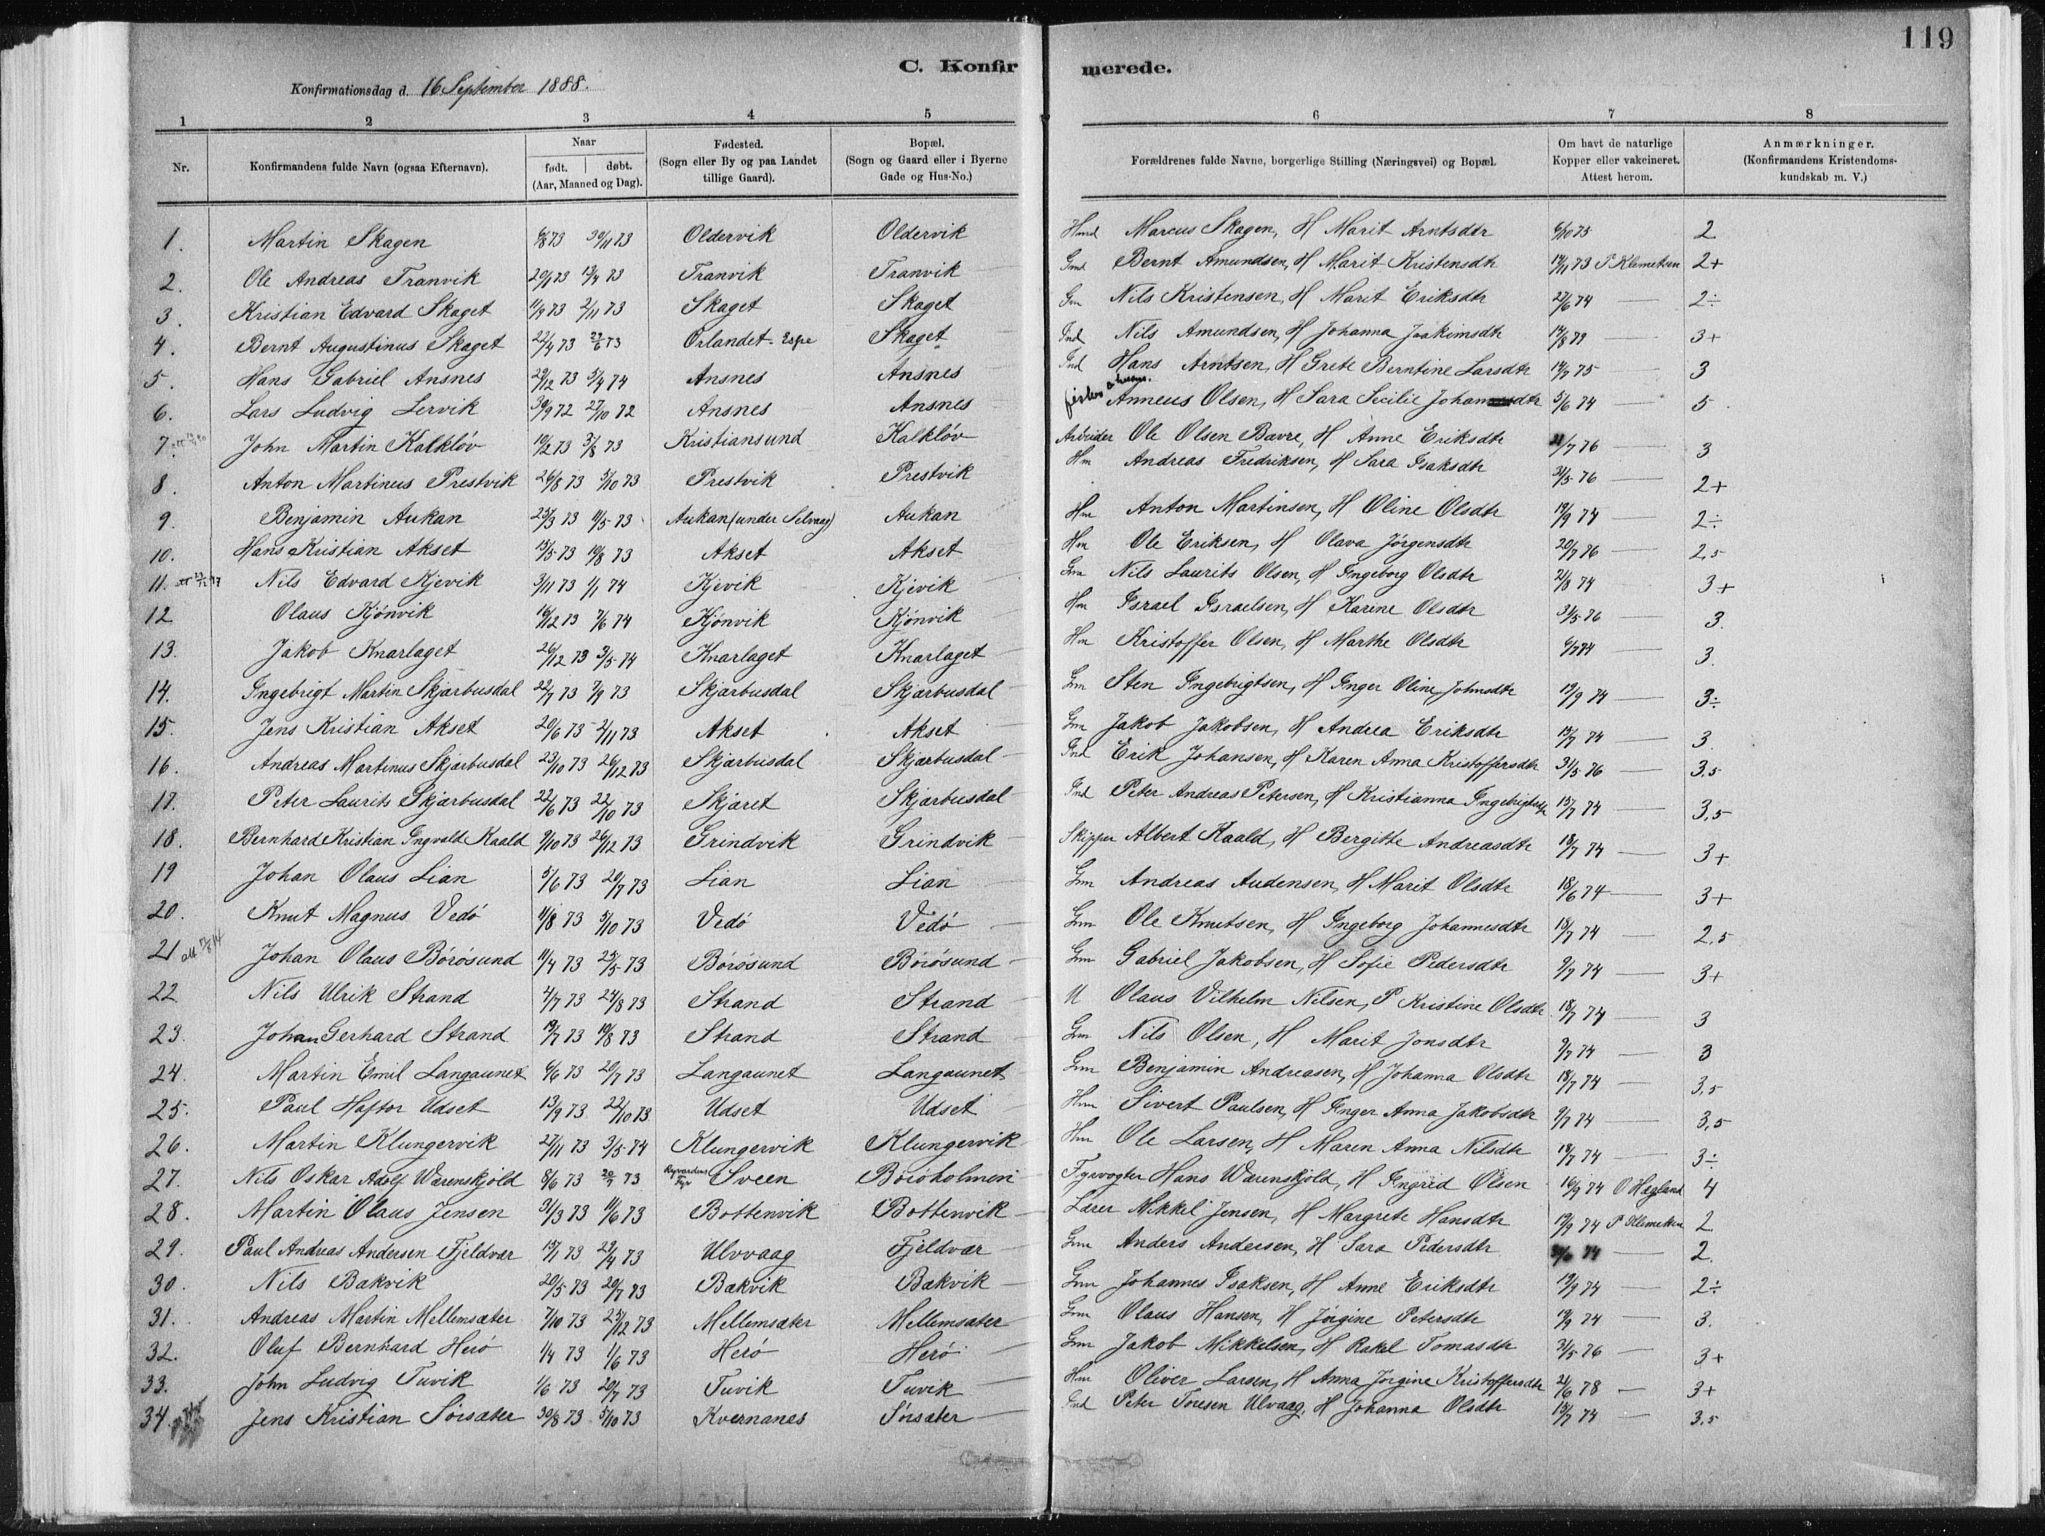 119
C. Konfirmerede.
Konfirmationsdag d. 16 September 1888.
1 2 3 4 5 6 7 8
Nr. | Konfirmandens fulde Navn (ogsaa Efternavn). | Naar født. døbt. (Aar, Maaned og Dag). | Fødested. (Sogn eller By og paa Landet tillige Gaard). | Bopæl. (Sogn og Gaard eller i Byerne Gade og Hus-No.) | Forældrenes fulde Navne, borgerlige Stilling (Næringsvei) og Bopæl. | Om havt de naturlige Kopper eller vakcineret. Attest herom. | Anmærkninger. (Konfirmandens Kristendomskundskab m. V.)
1. Martin Skagen 6/8 73 30/11 73 Oldervik Oldervik Hmd Marcus Skagen, H Marit Arntsdtr 6/10 75 2
2. Ole Andreas Tranvik 20/1 73 13/4 73 Tranvik Tranvik Gmd Bernt Amundsen, H Marit Kristensdtr 14/11 73 P Klemetsen 2+
3. Kristian Edvard Skaget 11/9 73 2/11 73 Skaget Skaget Gm Nils Kristensen, H Marit Eriksdtr 27/6 74 — 2÷
4. Bernt Augustinus Skaget 22/4 73 29/6 73 Ørlandet Espe Skaget Ind Nils Amundsen, H Johanna Joakimsdtr 14/8 79 — 3+
5. Hans Gabriel Ansnes 29/12 73 5/4 74 Ansnes Ansnes Ind Hans Arntsen, H Grete Berntine Larsdtr 14/7 75 — 3
6. Lars Ludvig Lervik 30/9 72 27/10 72 Ansnes Ansnes Anneus Olsen, H Sara Secilie Johansdtr 5/6 74 — 5
7. John Martin Kalkløv 10/2 73 3/8 73 Kristiansund Kalkløv Arbeider Ole Olsen Bævre, H Anne Eriksdtr 21/7 76 — 3
8. Anton Martinus Prestvik 26/8 73 5/10 73 Prestvik Prestvik Hm Andreas Fredriksen, H Sara Isaksdtr 31/5 76 — 2+
9. Benjamin Aukan 23/3 73 11/5 73 Aukan (under Selvaag) Aukan Hm Anton Martinsen, H Oline Olsdtr 19/9 74 — 2÷
10. Hans Kristian Akset 15/5 73 10/8 73 Akset Akset Hm Ole Eriksen, H Olava Jørgensdtr 20/7 76 — 2,5
11. Nils Edvard Kjevik 3/11 73 1/1 74 Kjevik Kjevik Gm Nils Laurits Olsen, H Ingeborg Olsdtr 21/8 74 — 3+
12 Olaus Kjønvik 16/12 73 7/6 74 Kjønvik Kjønvik Hm Israel Israelsen, H Karine Olsdtr 31/5 76 — 3.
13. Jakob Knarlaget 26/12 73 3/5 74 Knarlaget Knarlaget Hm Kristoffer Olsen, H Marthe Olsdtr 6/7 74 — 3.
14. Ingebrigt Martin Skjærbusdal 22/7 73 7/9 73 Skjærbusdal Skjærbusdal Gm Sten Ingebrigtsen, H Inger Oline Johnsdtr 19/9 74 — 3÷
15. Jens Kristian Akset 20/6 73 2/11 73 Akset Akset Gm Jakob Jakobsen, H Andrea Eriksdtr 15/7 74 — 3.
16. Andreas Martinus Skjærbusdal 23/10 73 26/12 73 Skjærbusdal Skjærbusdal Ind Erik Johansen, H Karen Anna Kristoffersdtr 31/5 76 — 3,5
17. Peter Laurits Skjærbusdal 22/6 73 22/10 73 Skjæret Skjærbusdal Ind Peter Andreas Petersen, H Kristianna Ingebrigtsdtr 15/7 74 — 3,5
18. Bernhard Kristian Ingvald Kaald 9/10 73 26/12 73 Grindvik Grindvik Skipper Albert Kaald, H Bergitte Andreasdtr 18/7 74 — 3+
19 Johan Olaus Lian 5/6 73 20/7 73 Lian Lian Gm Andreas Audensen, H Marit Olsdtr 18/6 74 — 3+
20. Knut Magnus Vedø 11/8 73 5/10 73 Vedø Vedø Gm Ole Knutsen, H Ingeborg Johannesdtr 18/7 74 — 2,5
21 Johan Olaus Børøsund 11/4 73 25/5 73 Børøsund Børøsund Gm Gabriel Jakobsen, H Sofie Pedersdtr 9/7 74 — 3+
22 Nils Ulrik Strand 4/7 73 24/8 73 Strand Strand U Olaus Vilhelm Nilsen, P Kristine Olsdtr 18/7 74 — 3
23. Johan Gerhard Strand 19/7 73 10/8 73 Strand Strand Gm Nils Olsen, H Marit Jonsdtr 9/7 74 — 3
24. Martin Emil Langaunet 6/6 73 20/7 73 Langaunet Langaunet Gm Benjamin Andreasen, H Johanna Olsdtr 18/7 74 — 3,5
25. Paul Haftor Udset 13/9 73 22/10 73 Udset Udset Hm Sivert Paulsen, H Inger Anna Jakobsdtr 9/7 74 — 3,5
26. Martin Klungervik 27/11 73 3/5 74 Klungervik Klungervik Hm Ole Larsen, H Maren Anna Nilsdtr 18/7 74 — 3÷
27. Nils Oskar Adolf Wærenskjold 8/6 73 20/7 73 Sveen Børøholmen Fyrvogter Hans Wærenskjold, H Ingrid Olsen 16/9 74 O Hægland 4
28. Martin Olaus Jensen 31/3 73 11/6 73 Bottenvik Bottenvik Lærer Mikkel Jensen, H Margrete Hansdtr 19/9 74 P Klemetsen 2
29. Paul Andreas Andersen Fjeldvær 15/1 73 29/4 73 Ulvvaag Fjeldvær Gm Anders Andersen, H Sara Pedersdtr 74 — 2.
30. Nils Bakvik 20/5 73 20/7 73 Bakvik Bakvik Gm Johannes Isaksen, H Anne Eriksdtr 19/9 74 — 2÷
31. Andreas Martin Mellemsæter 7/10 73 25/12 73 Mellemsæter Mellemsæter Gm Olaus Hansen, H Jørgine Petersdtr 19/9 74 — 3.
32. Oluf Bernhard Herø 1/4 73 1/6 73 Herø Herø Gm Jakob Mikkelsen, H Rakel Tomasdtr 31/5 76 — 3+
33. John Ludvig Tuvik 1/6 73 20/7 73 Tuvik Tuvik Hm Oliver Larsen, H Anna Jørgine Kristoffersdtr 21/6 78 — 3+
34. Jens Kristian Sørsæter 30/8 73 5/10 73 Kvernanes Sørsæter Ind Peter Toresen Ulvaag, H Johanna Olsdtr 18/7 74 — 3,5